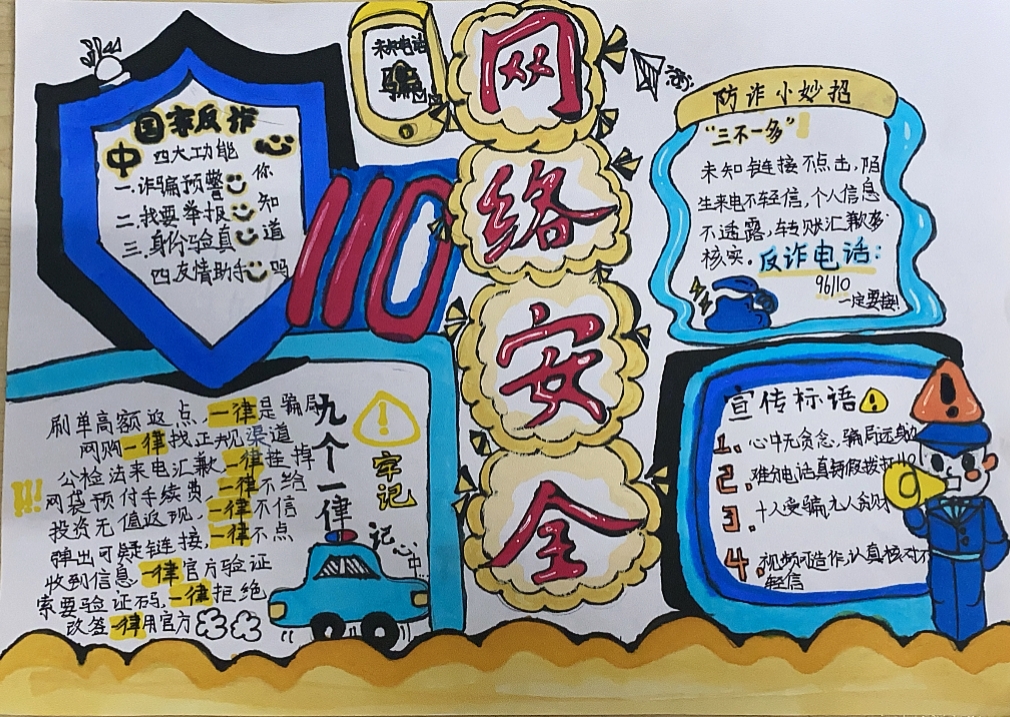 网
络
安
全
未知电话
国家反诈
中心
四大功能
一.诈骗预警
二.我要举报
三.身份验真
四友情助手
你
知
道
吗
110
防诈小妙招
“三不一多”
未知链接不点击,陌
生来电不轻信,个人信息
不透露,转账汇款多
核实。反诈电话:
96110
一定要接!
九个一律
牢记
记心中...
刷单高额返点,一律是骗局
网购一律找正规渠道
公检法来电汇款一律挂掉
网贷预付手续费,一律不给
投资无值返现,一律不信
弹出可疑链接,一律不点
收到信息一律官方验证
索要验证码,一律拒绝
改签一律用官方
!!!
宣传标语
1.心中无贪念,骗局远身
2.
3.十人受骗九人贪财
4.视频可造作,认真核对不
轻信